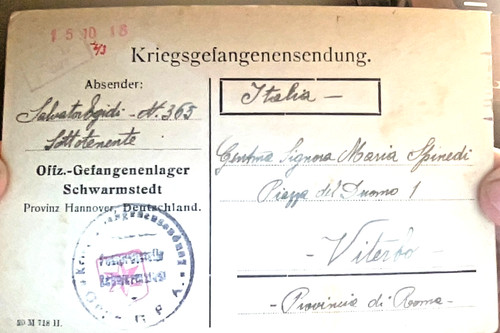 15 10 18
Kriegsgefangenensendung.
Absender:
Salvator Egidi - N. 365
Sottotenente
Offz.-Gefangenenlager
Schwarmstedt
Provinz Hannover, Deutschland.
Italia -
Gentma Signora Maria Spinedi
Piazza del Duomo 1
- Viterbo -
- Provincia di Roma -